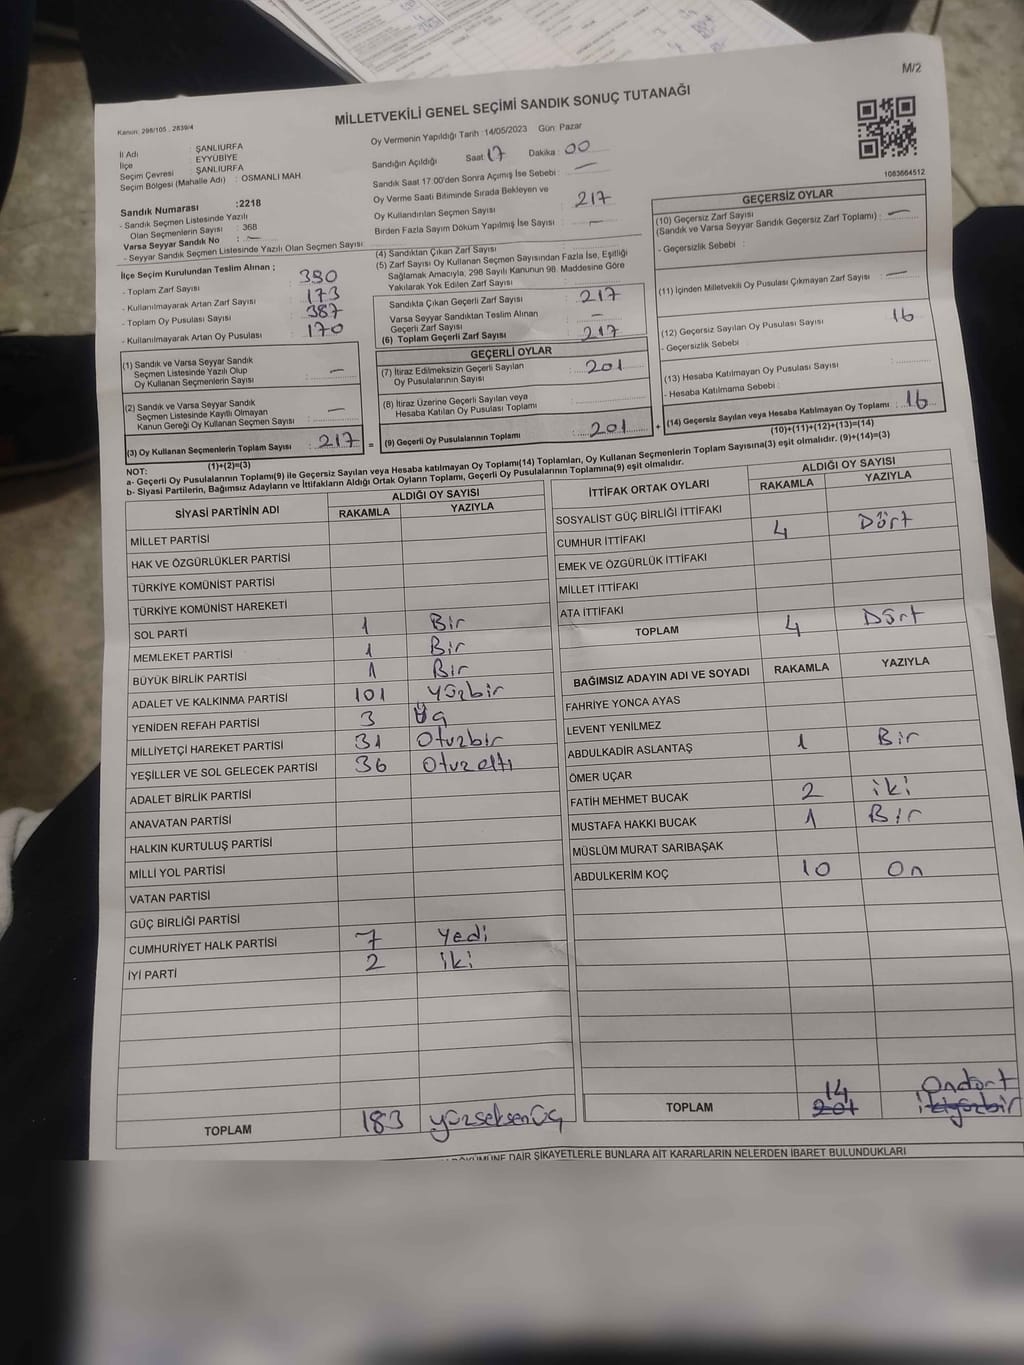 M/2
MİLLETVEKİLİ GENEL SEÇİMİ SANDIK SONUÇ TUTANAĞI
Kanun: 298/105 , 2839/4
İl Adı : ŞANLIURFA
İlçe : EYYÜBİYE
Seçim Çevresi : ŞANLIURFA
Seçim Bölgesi (Mahalle Adı) : OSMANLI MAH
Oy Vermenin Yapıldığı Tarih :14/05/2023 Gün: Pazar
Sandığın Açıldığı Saat: 17 Dakika: 00
Sandık Saat 17:00'den Sonra Açımış İse Sebebi : —
Oy Verme Saati Bitiminde Sırada Bekleyen ve
Oy Kullandırılan Seçmen Sayısı : 217
Birden Fazla Sayım Döküm Yapılmış İse Sayısı : —
1083664512
Sandık Numarası :2218
- Sandık Seçmen Listesinde Yazılı
Olan Seçmenlerin Sayısı : 368
Varsa Seyyar Sandık No : —
- Seyyar Sandık Seçmen Listesinde Yazılı Olan Seçmen Sayısı:
İlçe Seçim Kurulundan Teslim Alınan ;
- Toplam Zarf Sayısı : 390
- Kullanılmayarak Artan Zarf Sayısı : 173
- Toplam Oy Pusulası Sayısı : 387
- Kullanılmayarak Artan Oy Pusulası : 170
(1) Sandık ve Varsa Seyyar Sandık
Seçmen Listesinde Yazılı Olup
Oy Kullanan Seçmenlerin Sayısı : —
(2) Sandık ve Varsa Seyyar Sandık
Seçmen Listesinde Kayıtlı Olmayan
Kanun Gereği Oy Kullanan Seçmen Sayısı : —
(3) Oy Kullanan Seçmenlerin Toplam Sayısı : 217 =
(1)+(2)=(3)
(4) Sandıktan Çıkan Zarf Sayısı
(5) Zarf Sayısı Oy Kullanan Seçmen Sayısından Fazla İse, Eşitliği
Sağlamak Amacıyla, 298 Sayılı Kanunun 98. Maddesine Göre
Yakılarak Yok Edilen Zarf Sayısı :
Sandıkta Çıkan Geçerli Zarf Sayısı : 217
Varsa Seyyar Sandıktan Teslim Alınan
Geçerli Zarf Sayısı : —
(6) Toplam Geçerli Zarf Sayısı : 217
GEÇERLİ OYLAR
(7) İtiraz Edilmeksizin Geçerli Sayılan
Oy Pusulalarının Sayısı : 201
(8) İtiraz Üzerine Geçerli Sayılan veya
Hesaba Katılan Oy Pusulası Toplamı :
(9) Geçerli Oy Pusulalarının Toplamı : 201 +
GEÇERSİZ OYLAR
(10) Geçersiz Zarf Sayısı
(Sandık ve Varsa Seyyar Sandık Geçersiz Zarf Toplamı) : —
- Geçersizlik Sebebi :
(11) İçinden Milletvekili Oy Pusulası Çıkmayan Zarf Sayısı : —
(12) Geçersiz Sayılan Oy Pusulası Sayısı : 16
- Geçersizlik Sebebi :
(13) Hesaba Katılmayan Oy Pusulası Sayısı :
- Hesaba Katılmama Sebebi :
(14) Geçersiz Sayılan veya Hesaba Katılmayan Oy Toplamı : 16
(10)+(11)+(12)+(13)=(14)
NOT:
a- Geçerli Oy Pusulalarının Toplamı(9) ile Geçersiz Sayılan veya Hesaba katılmayan Oy Toplamı(14) Toplamları, Oy Kullanan Seçmenlerin Toplam Sayısına(3) eşit olmalıdır. (9)+(14)=(3)
b- Siyasi Partilerin, Bağımsız Adayların ve İttifakların Aldığı Ortak Oyların Toplamı, Geçerli Oy Pusulalarının Toplamına(9) eşit olmalıdır.
SİYASİ PARTİNİN ADI ALDIĞI OY SAYISI
RAKAMLA YAZIYLA
MİLLET PARTİSİ
HAK VE ÖZGÜRLÜKLER PARTİSİ
TÜRKİYE KOMÜNİST PARTİSİ
TÜRKİYE KOMÜNİST HAREKETİ
SOL PARTİ 1 Bir
MEMLEKET PARTİSİ 1 Bir
BÜYÜK BİRLİK PARTİSİ 1 Bir
ADALET VE KALKINMA PARTİSİ 101 yüzbir
YENİDEN REFAH PARTİSİ 3 Üç
MİLLİYETÇİ HAREKET PARTİSİ 31 Otuzbir
YEŞİLLER VE SOL GELECEK PARTİSİ 36 Otuz altı
ADALET BİRLİK PARTİSİ
ANAVATAN PARTİSİ
HALKIN KURTULUŞ PARTİSİ
MİLLİ YOL PARTİSİ
VATAN PARTİSİ
GÜÇ BİRLİĞİ PARTİSİ
CUMHURİYET HALK PARTİSİ 7 Yedi
İYİ PARTİ 2 iki
TOPLAM 183 yüzseksenüç
İTTİFAK ORTAK OYLARI ALDIĞI OY SAYISI
RAKAMLA YAZIYLA
SOSYALİST GÜÇ BİRLİĞİ İTTİFAKI
CUMHUR İTTİFAKI 4 Dört
EMEK VE ÖZGÜRLÜK İTTİFAKI
MİLLET İTTİFAKI
ATA İTTİFAKI
TOPLAM 4 Dört
BAĞIMSIZ ADAYIN ADI VE SOYADI RAKAMLA YAZIYLA
FAHRİYE YONCA AYAS
LEVENT YENİLMEZ
ABDULKADİR ASLANTAŞ 1 Bir
ÖMER UÇAR
FATİH MEHMET BUCAK 2 iki
MUSTAFA HAKKI BUCAK 1 Bir
MÜSLÜM MURAT SARIBAŞAK
ABDULKERİM KOÇ 10 On
14 Ondört
TOPLAM 201 ikiyüzbir
DÖKÜMÜNE DAİR ŞİKAYETLERLE BUNLARA AİT KARARLARIN NELERDEN İBARET BULUNDUKLARI